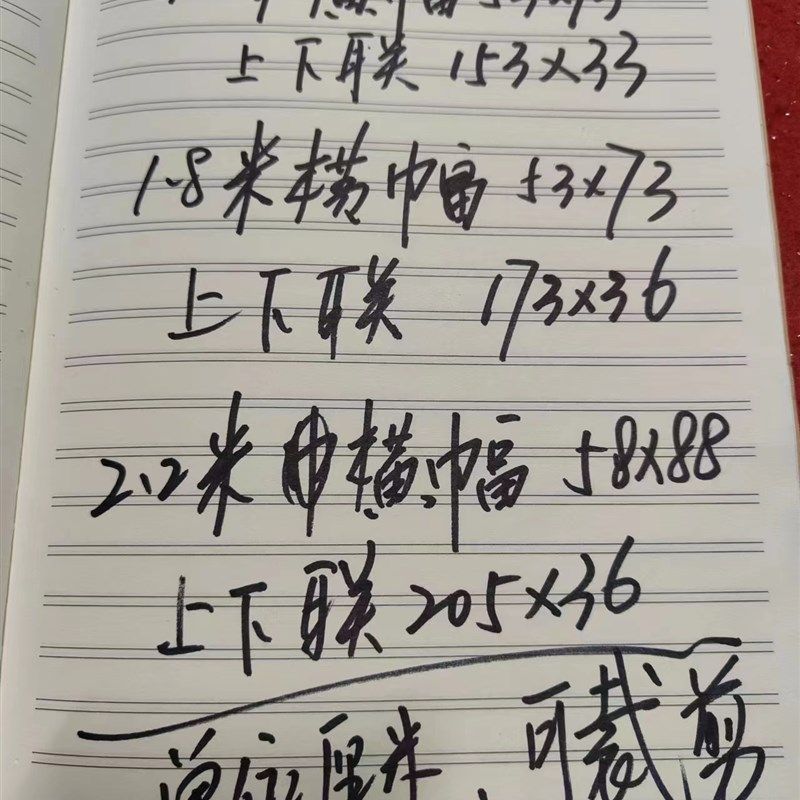 上下联 153×33
1.8米横巾畐 53×73
上下联 173×36
2.2米 横巾畐 58×88
上下联 205×36
单位厘米、可裁剪